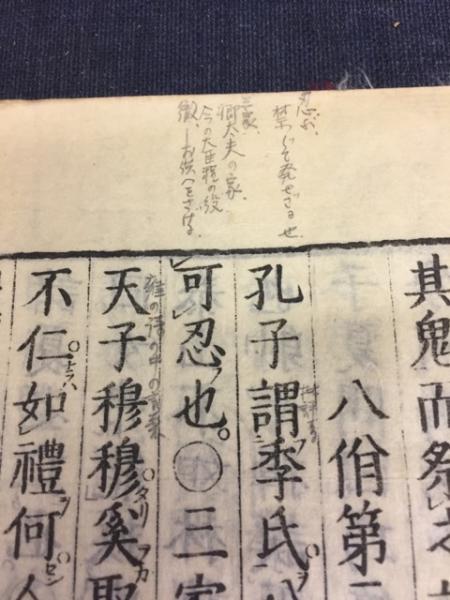 忍ぶ、
禁じて発せざる也
三家、
卿大夫の家、
今の大臣程の役
徹、お供へをさげる
其鬼而祭
八佾第
孔子謂季氏八
可忍也。〇三家
雍の詩の中の言葉
天子穆穆奚取
不仁如禮何人